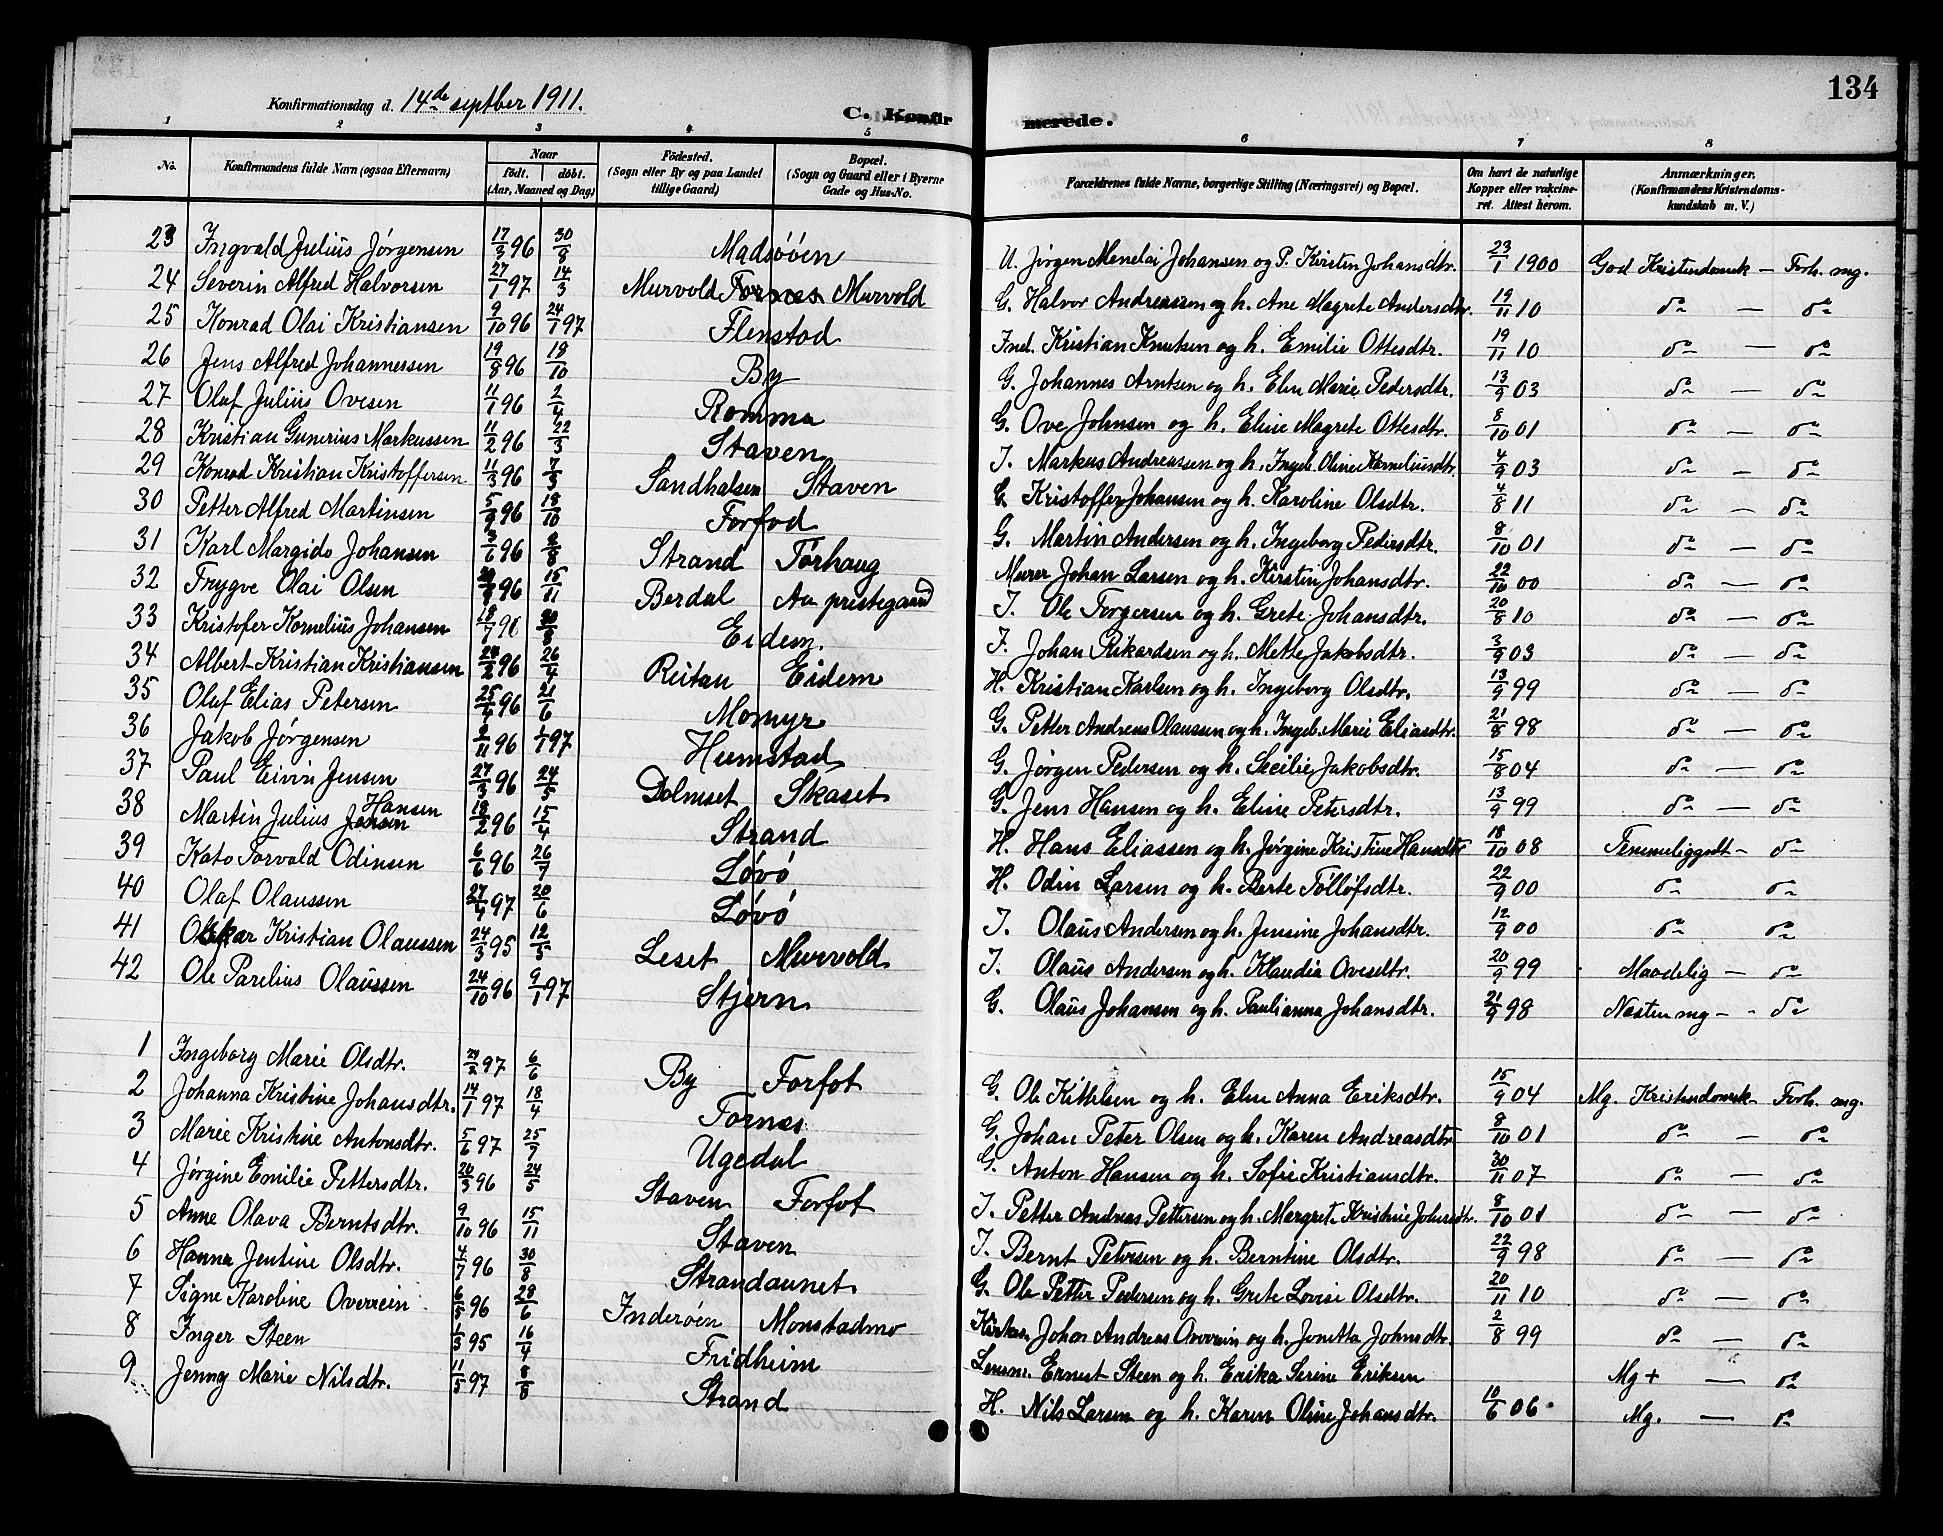 134
Konfirmationsdag d. 14de septber 1911.
C. Konfirmerede.
1 2 3 4 5 6 7 8
No. Konfirmandens fulde Navn (ogsaa Efternavn) Naar født. døbt. (Aar, Maaned og Dag) Fødested. (Sogn eller By og paa Landet tillige Gaard) Bopæl. (Sogn og Gaard eller i Byerne Gade og Hus-No. Forældrenes fulde Navne, borgerlige Stilling (Næringsvei) og Bopæl. Om havt de naturlige Kopper eller vakcineret. Attest herom. Anmærkninger. (Konfirmandens Kristendomskundskab m. V.)
23 Ingvald Julius Jørgensen 17/3 96 30/8 Madsøøen U. Jørgen Menelai Johansen og P. Kirsten Johansdtr. 23/1 1900 God Kristendomsk — Forh. mg.
24 Severin Alfred Halvorsen 27/1 97 14/3 Murvold Fornes Murvold G. Halvor Andreassen og h. Ane Magrete Andersdtr. 19/11 10 do — do
25 Konrad Olai Kristiansen 9/10 96 24/1 97 Flenstad Ind. Kristian Knutsen og h. Emilie Ottesdtr. 19/11 10 do — do
26 Jens Alfred Johannessen 19/8 96 18/10 By G. Johannes Arntsen og h. Elen Marie Pedersdtr. 13/9 03 do — do
27 Olaf Julius Ovesen 11/1 96 2/4 Romma G. Ove Johnsen og h. Eline Magrete Ottesdtr. 8/10 01 do — do
28 Kristian Gunerius Markussen 11/2 96 22/3 Staven I. Markus Andreassen og h. Ingeb. Oline Korneliusdtr. 4/9 03 do — do
29 Konrad Kristian Kristoffersen 11/3 96 7/3 Sandhalsen Staven G. Kristoffer Johansen og h. Karoline Olsdtr. 4/8 11 do — do
30 Petter Alfred Martinsen 5/9 96 18/10 Forfod G. Martin Andersen og h. Ingeborg Pedersdtr. 8/10 01 do — do
31 Karl Margido Johansen 3/6 96 2/8 Strand Tørhaug Murer Johan Larsen og h. Kirstin Johansdtr. 22/10 00 do — do
32 Trygve Olai Olsen 96 15/11 Berdal Aa prestegaard I. Ole Torgersen og h. Grete Johansdtr. 20/8 10 do — do
33 Kristofer Kornelius Johansen 18/7 96 30/8 Eidem. I. Johan Rikardsen og h. Mette Jakobsdtr. 3/9 03 do — do
34 Albert Kristian Kristiansen 24/2 96 26/4 Reitan Eidem H. Kristian Karlsen og h. Ingeborg Olsdtr. 13/9 99 do — do
35 Olaf Elias Petersen 25/4 96 21/6 Momyr G. Petter Andreas Olaussen og h. Ingeb. Marie Eliasdtr. 21/8 98 do — do
36 Jakob Jørgensen 2/11 96 1/1 97 Humstad G. Jørgen Pedersen og h. Secilie Jakobsdtr. 15/8 04 do — do
37 Paul Eivin Jensen 27/3 96 24/5 Dolmset Skaset G. Jens Hansen og h. Eline Petersdtr. 13/9 99 do — do
38 Martin Julius Hansen 18/2 96 15/4 Strand H. Hans Eliassen og h. Jørgine Kristine Hansdtr 18/10 08 Temmeliggodt — do
39 Kato Torvald Odinsen 6/6 96 26/7 Løvø H. Odin Larsen og h. Berte Tølløfsdtr. 22/9 00 do do
40 Olaf Olaussen 27/4 97 20/6 Løvø I. Olaus Andersen og h. Jensine Johansdtr. 12/9 00 do do
41 Oskar Kristian Olaussen 24/3 95 12/5 Leset Murvold I. Olaus Andersen og h. Klaudia Ovesdtr. 20/9 99 Maadelig — do
42 Ole Parelius Olaussen 24/10 96 9/1 97 Stjern G. Olaus Johansen og h. Paulianna Johansdtr. 21/9 98 Næsten mg — do
1 Ingeborg Marie Olsdtr. 97 6/6 By Forfot G. Ole Kittelsen og h. Elen Anna Eriksdtr. 15/9 04 Mg. Kristendomsk — Forh. mg.
2 Johanna Kristine Johansdtr. 14/1 97 18/4 Fornes G. Johan Peter Olsen og h. Karen Andreasdtr 8/10 01 do — do
3 Marie Kristine Antonsdtr. 5/6 97 25/7 Ugedal G. Anton Hansen og h. Sofie Kristiansdtr. 30/11 07 do — do
4 Jørgine Emilie Pettersdtr. 20/3 96 24/5 Staven Forfot I. Petter Andreas Pettersen og h. Margrete Kristine Johnsdtr. 8/10 01 do — do
5 Anne Olava Berntsdtr. 9/10 96 15/11 Staven I. Bernt Petersen og h. Berntine Olsdtr. 22/9 98 do — do
6 Hanna Jentine Olsdtr. 4/7 96 30/8 Strandaunet G. Ole Petter Pedersen og h. Grete Lovise Olsdtr. 20/11 10 do — do
7 Signe Karoline Overrein 6/5 96 28/6 Inderøen Monstadmo Kirkes. Johan Andreas Overrein og h. Jonetta Johnsdtr. 2/8 99 do — do
8 Inger Steen 1/3 95 16/4 Fridheim Lensm. Ernest Steen og h. Erika Serine Eriksen Mg+ — do
9 Jenny Marie Nilsdtr. 11/5 97 8/8 Strand H. Nils Larsen og h. Karen Oline Johansdtr. 10/6 06 Mg. — do